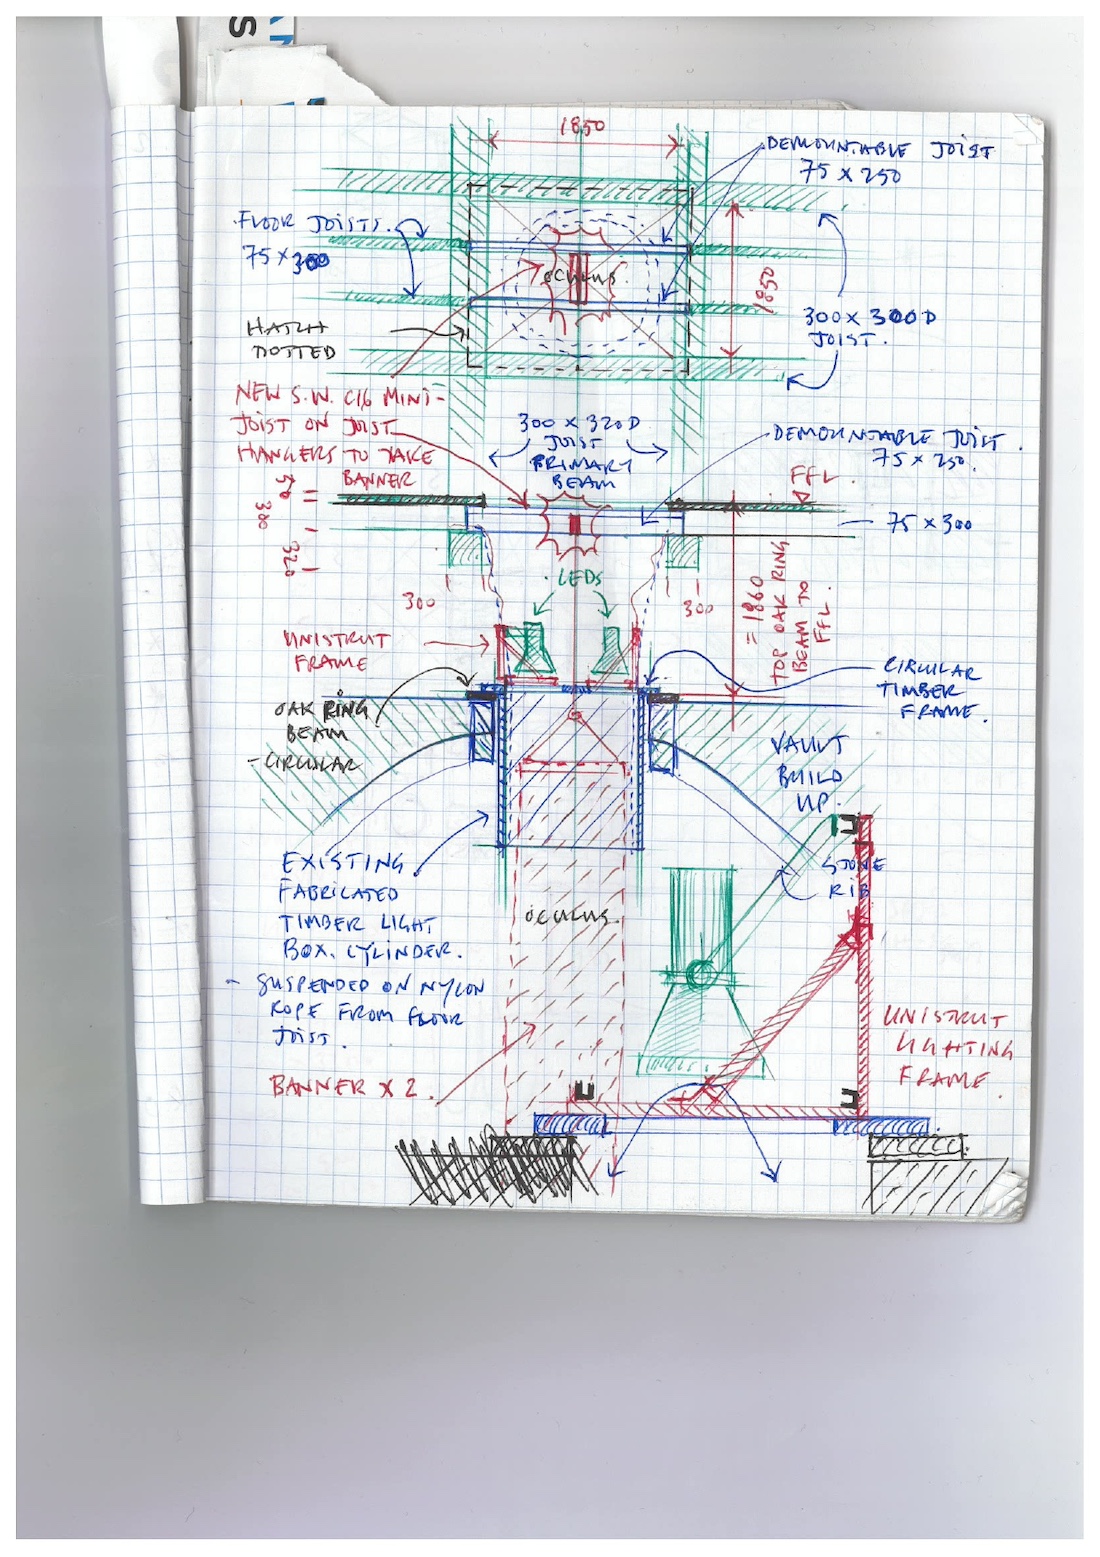 1850
DEMOUNTABLE JOIST
75 X 250
FLOOR JOISTS.
75 X 300
OCULUS.
1850
300 X 300D
JOIST.
HATCH
DOTTED
NEW S.W. C16 MINI-
JOIST ON JOIST
HANGERS TO TAKE
BANNER
300 X 320D
JOIST
PRIMARY
BEAM
DEMOUNTABLE JOIST.
75 X 250.
FFL.
50
300
320
75 X 300
LEDS
300
300
= 1860
TOP OAK RING
BEAM TO
FFL.
UNISTRUT
FRAME
CIRCULAR
TIMBER
FRAME.
OAK RING
BEAM
- CIRCULAR
VAULT
BUILD
UP.
STONE
RIB
EXISTING
FABRICATED
TIMBER LIGHT
BOX. CYLINDER.
- SUSPENDED ON NYLON
ROPE FROM FLOOR
JOIST.
OCULUS.
BANNER X 2.
UNISTRUT
LIGHTING
FRAME.